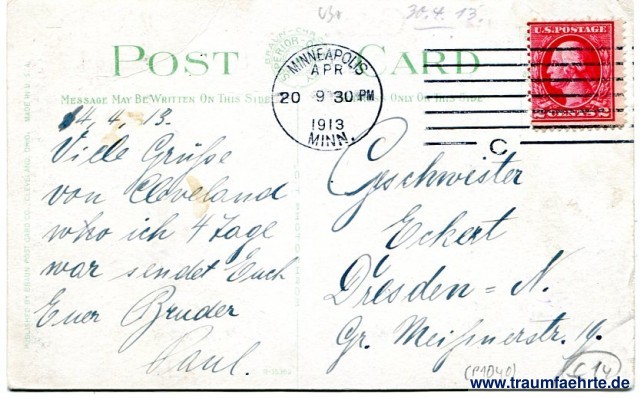 30.4.13.
POST CARD
MESSAGE MAY BE WRITTEN ON THIS SIDE
ONLY ON THIS SIDE
U.S. POSTAGE
MINNEAPOLIS
APR
20 9 30 PM
1913
MINN.
C
14, 4, 13.
Viele Grüße
von Cleveland
who ich 4 Tage
war sendet Euch
Euer Bruder
Paul.
Geschwister
Eckert
Dresden=N.
Gr. Meißnerstr. 19.
(P1040)
C14
MADE IN U.S.A.
www.traumfaehrte.de